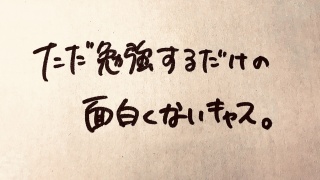 ただ勉強するだけの
面白くないキャス。